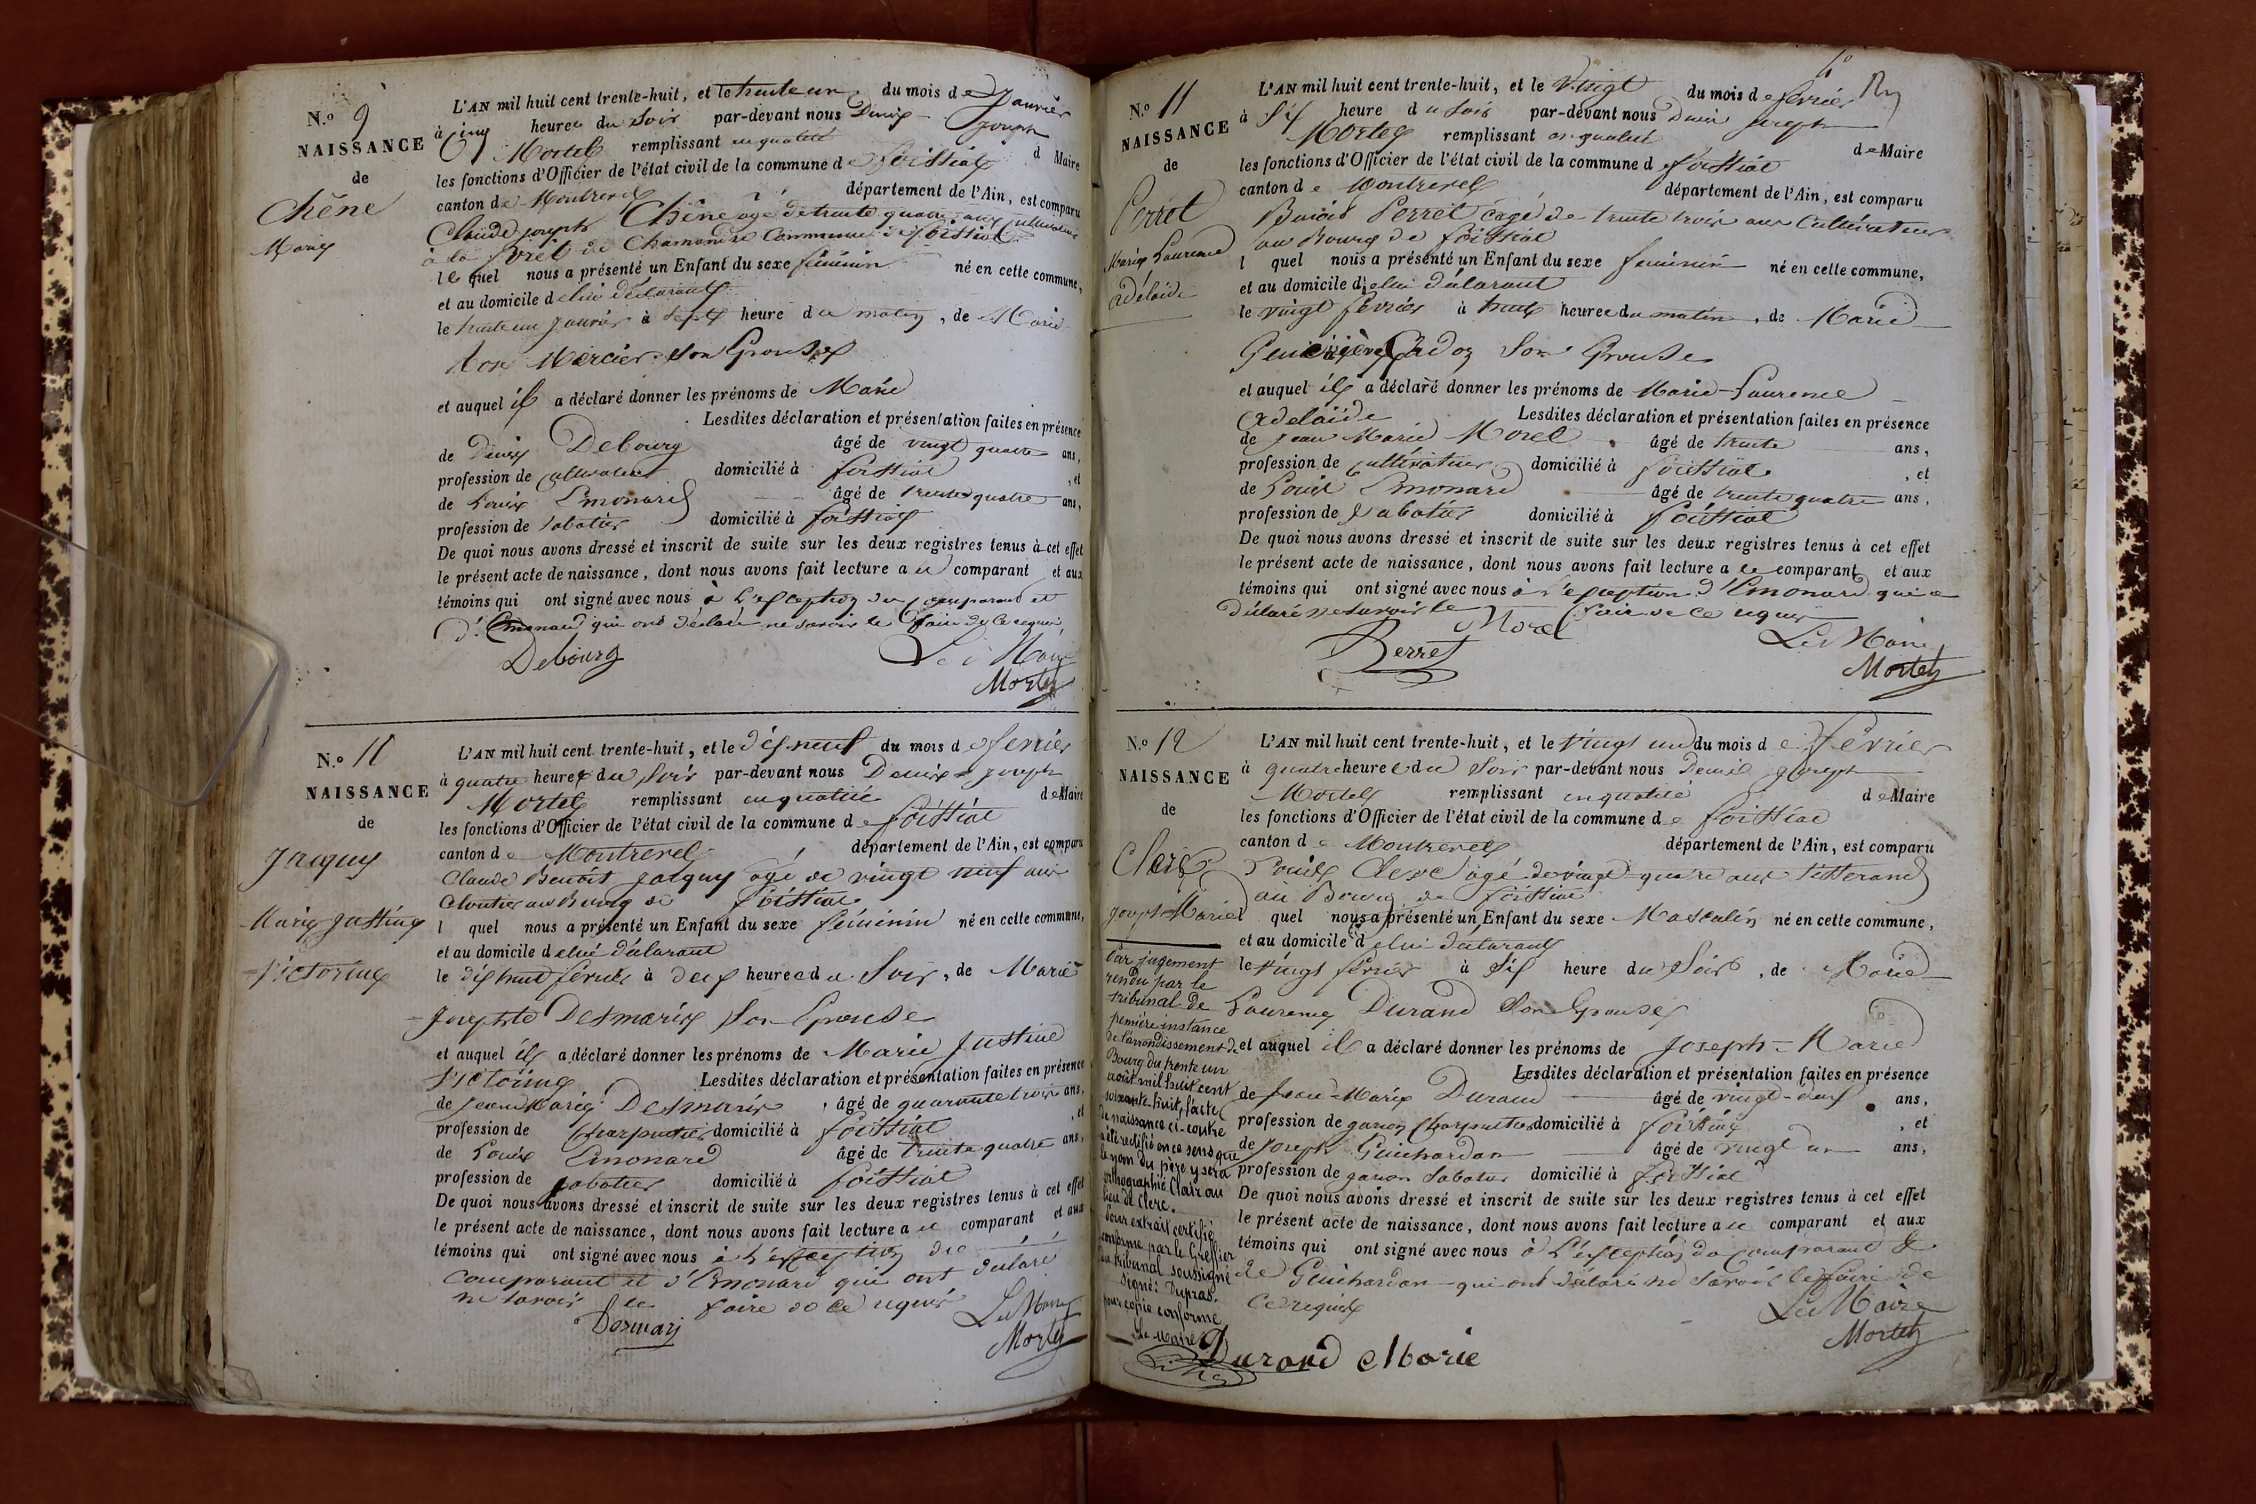 N.o 9
NAISSANCE
de
Chêne
Marie
L'AN mil huit cent trente-huit, et le trente un du mois de Janvier
à cinq heure du Soir par-devant nous Denis Joseph
Mortel remplissant en qualité d Maire
les fonctions d'Officier de l'état civil de la commune de foissiat
canton de Montrevel département de l'Ain, est comparu
Claude joseph Chêne âgé de trente quatre ans Cultivateur
à la foret de Chamandre Commune de foissiat
lequel nous a présenté un Enfant du sexe féminin né en cette commune,
et au domicile de lui déclarant
le trente un janvier à sept heure du matin, de Marie
Mercier son Epouse
et auquel il a déclaré donner les prénoms de Marie
Lesdites déclaration et présentation faites en présence
de Denis Debourg âgé de vingt quatre ans,
profession de cultivateur domicilié à foissiat, et
de Louis Emonard âgé de trente quatre ans,
profession de sabotier domicilié à foissiat
De quoi nous avons dressé et inscrit de suite sur les deux registres tenus à cet effet
le présent acte de naissance, dont nous avons fait lecture a comparant et aux
témoins qui ont signé avec nous à l'exception du comparant et
d'Emonard qui ont déclaré ne savoir le faire de ce requis
Debourg Le Maire
Mortel
N.o 10
NAISSANCE
de
Jacquy
Marie justine
Victorine
L'AN mil huit cent trente-huit, et le dix neuf du mois de fevrier
à quatre heures du Soir par-devant nous Denis joseph
Mortel remplissant en qualité de Maire
les fonctions d'Officier de l'état civil de la commune de foissiat
canton de Montrevel département de l'Ain, est comparu
Claude Benoît Jacquy âgé de vingt neuf ans
Cloutier au Bourg de foissiat
l quel nous a présenté un Enfant du sexe féminin né en cette commune,
et au domicile de lui déclarant
le dix huit février à deux heures du Soir, de Marie
Josephte Desmaris Son Epouse
et auquel il a déclaré donner les prénoms de Marie justine
Victorine Lesdites déclaration et présentation faites en présence
de jean Marie Desmaris âgé de quarante trois ans,
profession de Charpentier domicilié à foissiat, et
de Louis Emonard âgé de trente quatre ans,
profession de sabotier domicilié à foissiat
De quoi nous avons dressé et inscrit de suite sur les deux registres tenus à cet effet
le présent acte de naissance, dont nous avons fait lecture a comparant et aux
témoins qui ont signé avec nous à l'exception du
comparant et d'Emonard qui ont déclaré
ne savoir le faire de ce requis
Desmarj Le Maire
Mortel
N.o 11
NAISSANCE
de
Perret
Marie Laurence
adélaide
L'AN mil huit cent trente-huit, et le vingt du mois de février
à Six heure du soir par-devant nous Denis joseph
Mortel remplissant en qualité de Maire
les fonctions d'Officier de l'état civil de la commune de foissiat
canton de Montrevel département de l'Ain, est comparu
Benoit Perret âgé de trente trois ans Cultivateur
au Bourg de foissiat
l quel nous a présenté un Enfant du sexe feminin né en cette commune,
et au domicile de lui déclarant
le vingt février à heure du matin, de Marie
Son Epouse
et auquel il a déclaré donner les prénoms de Marie-Laurence
Adelaïde Lesdites déclaration et présentation faites en présence
de jean Marie Morel âgé de trente ans,
profession de cultivateur domicilié à foissiat, et
de Louis Emonard âgé de trente quatre ans,
profession de sabotier domicilié à foissiat
De quoi nous avons dressé et inscrit de suite sur les deux registres tenus à cet effet
le présent acte de naissance, dont nous avons fait lecture a le comparant et aux
témoins qui ont signé avec nous à l'exception d'Emonard qui a
déclaré ne savoir le faire de ce requis
Morel
Perret Le Maire
Mortel
N.o 12
NAISSANCE
de
Clerc
joseph Marie
Par jugement
rendu par le
tribunal de
première instance
de l'arrondissement de
Bourg du trente un
août mil huit cent
soixante-huit, l'acte
de naissance ci-contre
a été rectifié en ce sens que
le nom du père y sera
orthographié Clair au
lieu de Clerc.
Pour extrait certifié
conforme par le Greffier
du tribunal soussigné
Signé: Dupras.
pour copie conforme
Le Maire
L'AN mil huit cent trente-huit, et le vingt un du mois de février
à quatre heure du Soir par-devant nous Denis joseph
Mortel remplissant en qualité de Maire
les fonctions d'Officier de l'état civil de la commune de foissiat
canton de Montrevel département de l'Ain, est comparu
Louis Clerc âgé de vingt quatre ans tisserand
au Bourg de foissiat
l quel nous a présenté un Enfant du sexe Masculin né en cette commune,
et au domicile de lui déclarant
le vingt février à Six heure du Soir, de Marie
Laurence Durand Son Epouse
et auquel il a déclaré donner les prénoms de Joseph-Marie
Lesdites déclaration et présentation faites en présence
de Jean-Marie Durand âgé de vingt-deux ans,
profession de garçon Charpentier domicilié à foissiat, et
de joseph Guichardan âgé de vingt un ans,
profession de garçon sabotier domicilié à foissiat
De quoi nous avons dressé et inscrit de suite sur les deux registres tenus à cet effet
le présent acte de naissance, dont nous avons fait lecture a comparant et aux
témoins qui ont signé avec nous à l'exception du comparant &
de Guichardan qui ont déclaré ne savoir le faire de
ce requis Le Maire
Mortel
Durand Marie